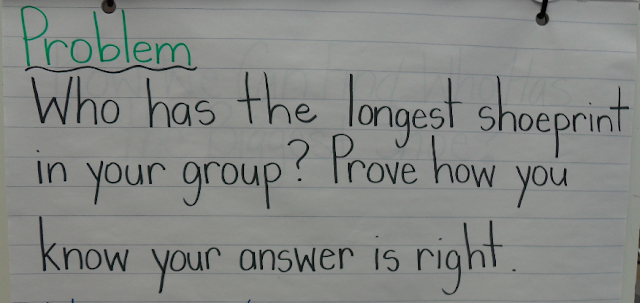 Problem
Who has the longest shoeprint
in your group? Prove how you
know your answer is right.